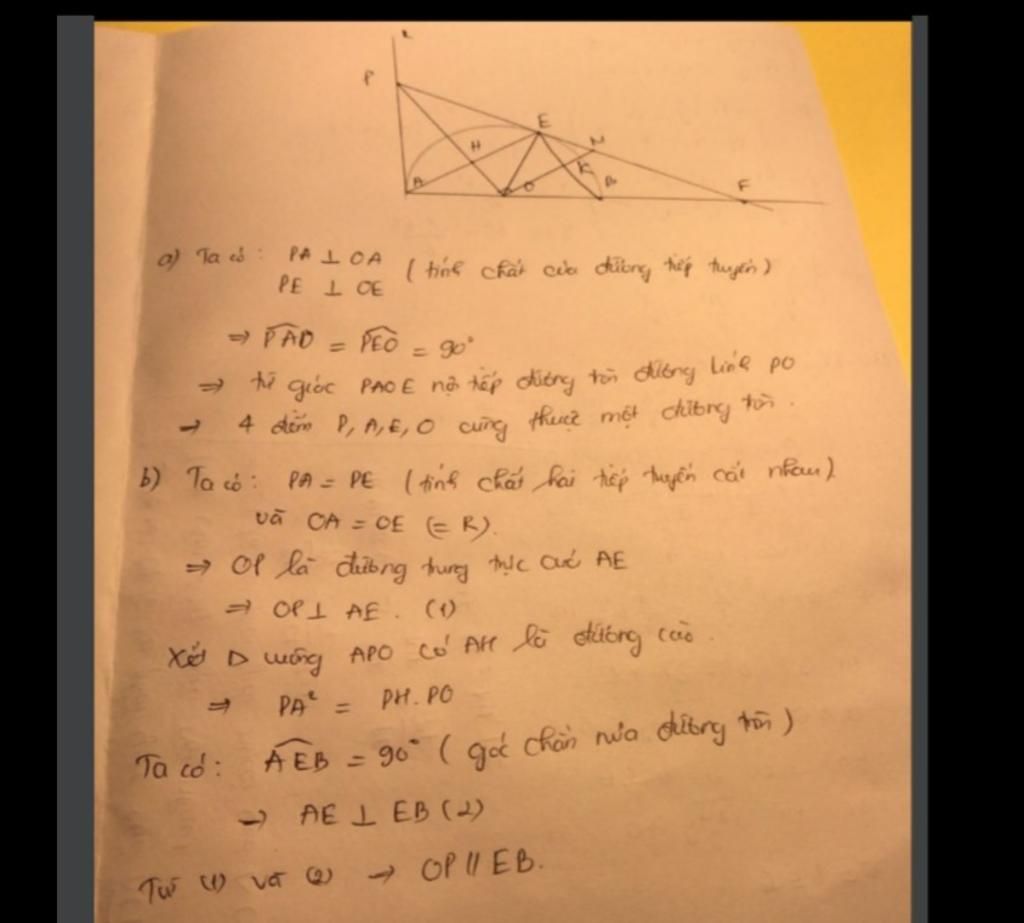 P
E
H
N
K
A
O
B
F
a) Ta có: PA ⊥ OA
PE ⊥ OE (tính chất của đường tiếp tuyến)
⇒ PAO = PEO = 90°
⇒ tứ giác PAOE nội tiếp đường tròn đường kính PO
→ 4 điểm P, A, E, O cùng thuộc một đường tròn.
b) Ta có: PA = PE (tính chất hai tiếp tuyến cắt nhau)
và OA = OE (= R).
⇒ OP là đường trung trực của AE
⇒ OP ⊥ AE. (1)
Xét Δ vuông APO có AH là đường cao.
⇒ PA² = PH.PO
Ta có: AEB = 90° (góc chắn nửa đường tròn)
→ AE ⊥ EB (2)
Từ (1) và (2) → OP // EB.